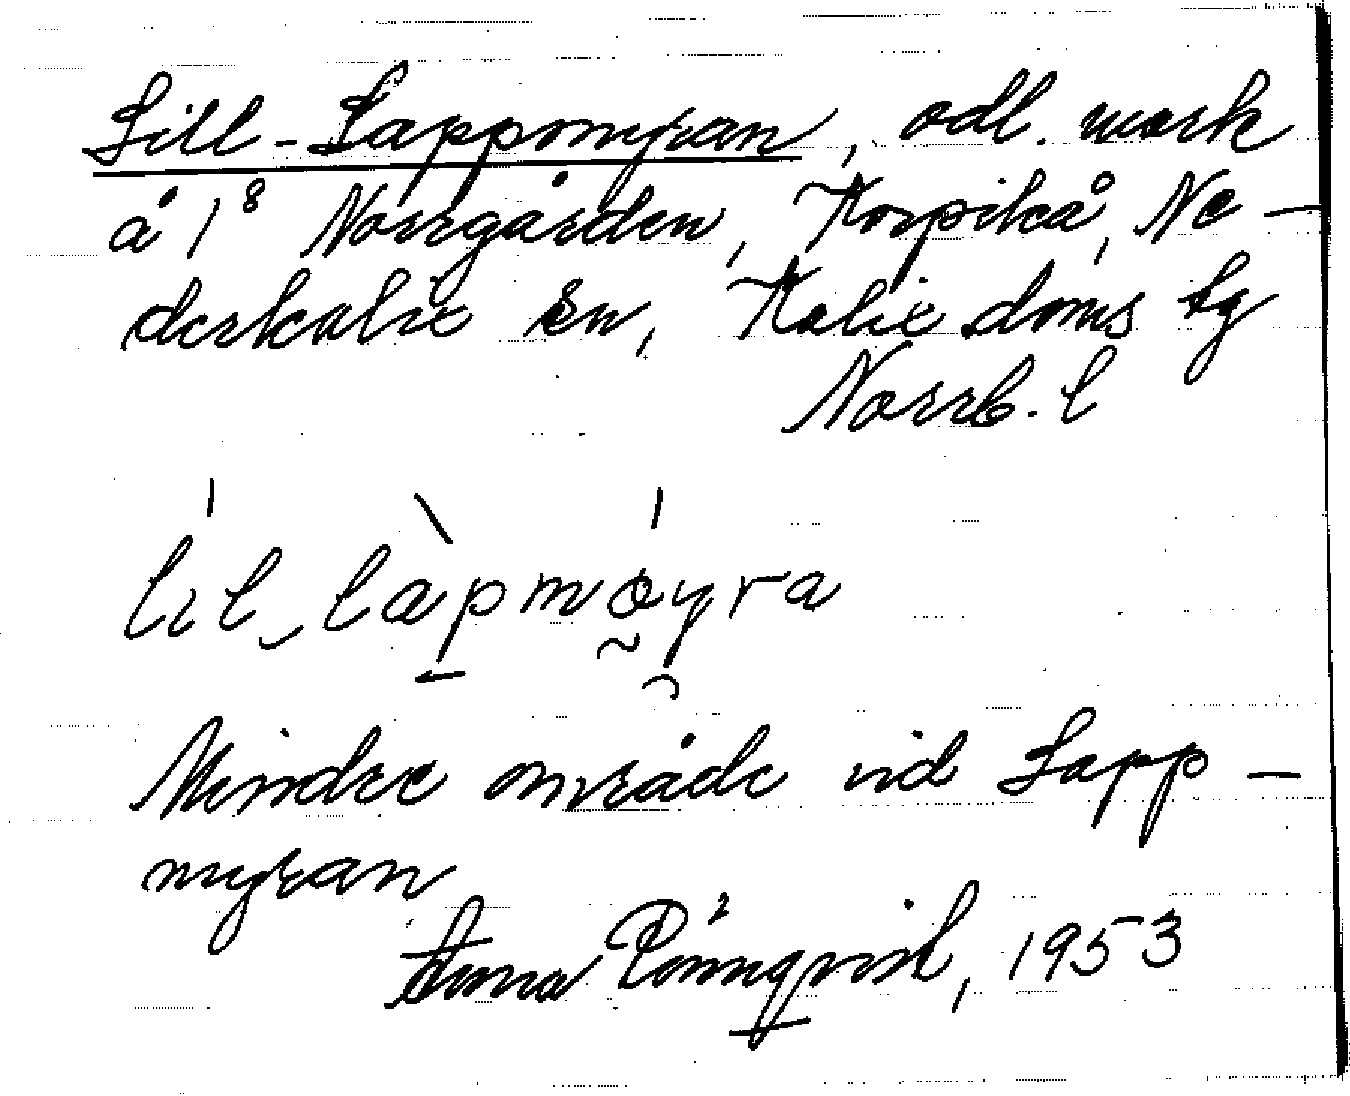 Lill-Lappmyran, odl. mark
å 1⁸ Norrgården, Korpikå, Ne-
derkalix sn, Kalix doms tg
Norrb. l
lil lapmøyra
Mindre område vid Lapp-
myran
Anna Rönnqvist, 1953